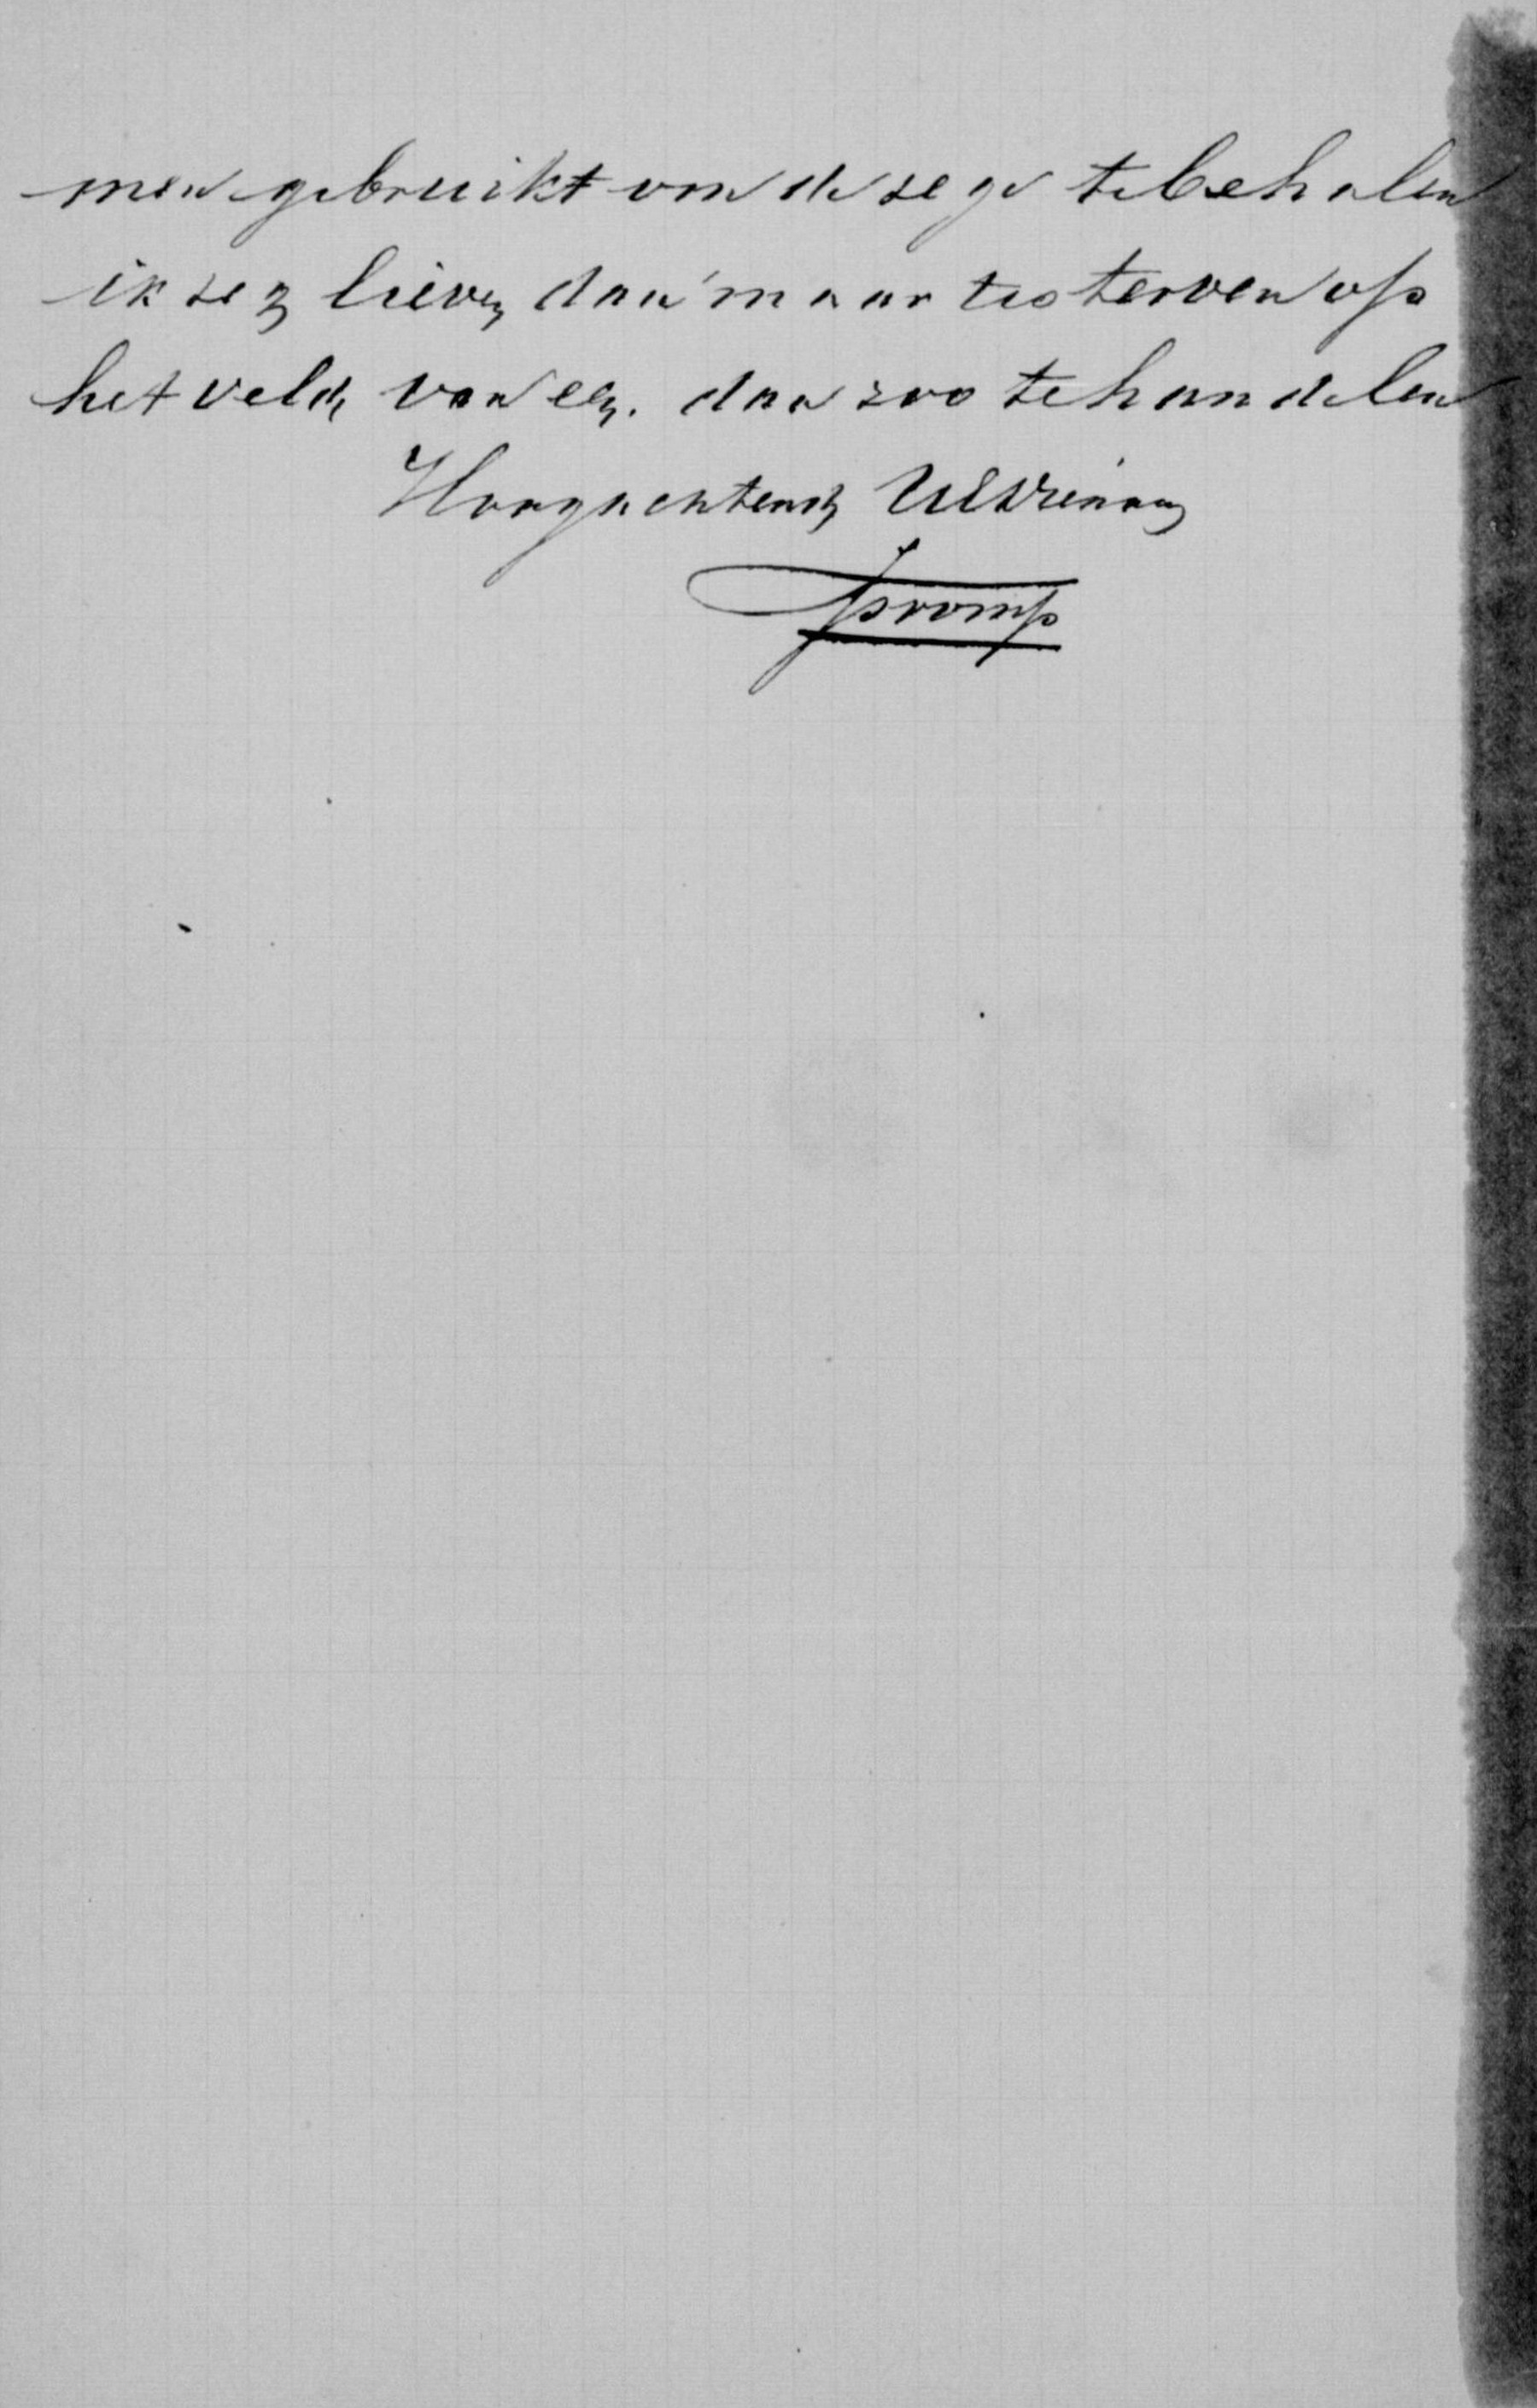 men gebruikt om de zege te behalen
ik zeg liever dan maar te sterven op
het veld van eer. dan zoo te handelen
Hoogachtend UEdienaar
Tromp